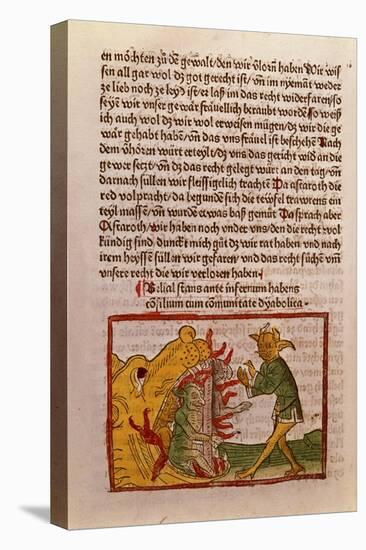 en möchten zů dē gewalt/den wir vlorn̄ haben Wir wis
sen all gar wol dz got gerecht ist/vn̄ in nyemāt wedeꝛ
ze lieb noch ze leyd ist/er laß im das recht widerfaren/so
seyē wir vnser gewär fräuellich beraubt worden So weiß
ich auch wol dz wir wol erweisen mügen/dz wir die ge
wär gehabt haben vn̄ das vns fräuel ist beschehen Nach
dem v̓hören wurt erteylt/dz vns das gericht wid̓ an die
gewer setzt/vn̄ dz recht gelegt würt an den tag/vn̄
darnach süllen wir fleissigelich trachten Da astaroth die
red volpracht/da begundē sich die tewfel trawrens eyn
teyl massē/vn̄ wurdē etwas baß gemūt Da sprach aber
Astaroth/wir haben noch vnder vns/den die recht vol
kündig sind/dunckt mich gůt dz wir rat haben/vn̄ nach
irem heyssen süll wir gefaren/vnd das recht süchē vn̄
vnsere recht die wir verloren haben
Belial stans ante infernum habens
cōsilium cum cōmunitate dyabolica